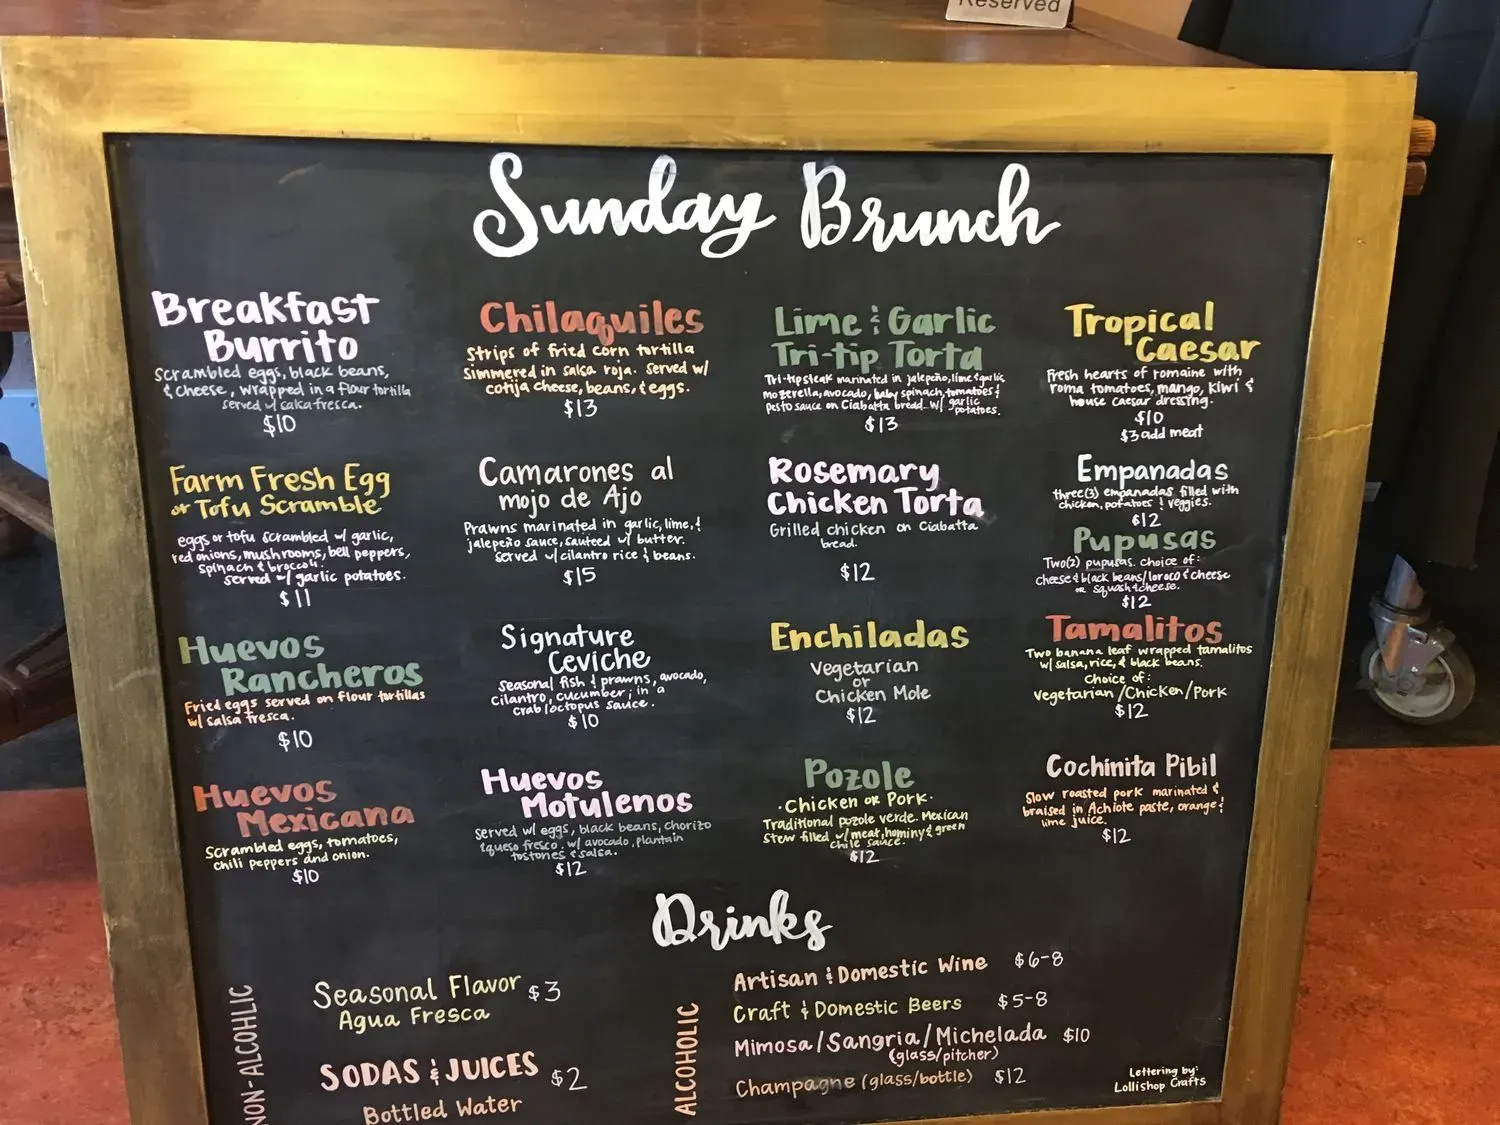 Reserved
Sunday Brunch
Breakfast
Burrito
Scrambled eggs, black beans,
& cheese, wrapped in a flour tortilla
served w/ salsa fresca.
$10
Farm Fresh Egg
or Tofu Scramble
eggs or tofu scrambled w/ garlic,
red onions, mushrooms, bell peppers,
spinach & broccoli.
served w/ garlic potatoes.
$11
Huevos
Rancheros
Fried eggs served on flour tortillas
w/ salsa fresca.
$10
Huevos
Mexicana
Scrambled eggs, tomatoes,
chili peppers and onion.
$10
Chilaquiles
Strips of fried corn tortilla
simmered in salsa roja. Served w/
cotija cheese, beans, & eggs.
$13
Camarones al
mojo de Ajo
Prawns marinated in garlic, lime, &
jalepeño sauce, sauteed w/ butter.
Served w/ cilantro rice & beans.
$15
Signature
Ceviche
Seasonal fish & prawns, avocado,
cilantro, cucumber; in a
crab/octopus sauce.
$10
Huevos
Motulenos
Served w/ eggs, black beans, chorizo
& queso fresco. w/ avocado, plantain
tostones & salsa.
$12
Lime & Garlic
Tri-tip Torta
Tri-tip steak marinated in jalepeño, lime & garlic,
mozerella, avocado, baby spinach, tomatoes &
pesto sauce on Ciabatta bread. w/ garlic
potatoes.
$13
Rosemary
Chicken Torta
Grilled chicken on Ciabatta
bread.
$12
Enchiladas
Vegetarian
or
Chicken Mole
$12
Pozole
·Chicken or Pork·
Traditional pozole verde. Mexican
Stew filled w/ meat, hominy & green
chile sauce.
$12
Tropical
Caesar
Fresh hearts of romaine with
roma tomatoes, mango, kiwi &
house caesar dressing.
$10
$3 add meat
Empanadas
three (3) empanadas filled with
chicken, potatoes & veggies.
$12
Pupusas
Two (2) pupusas. choice of:
cheese & black beans/loroco & cheese
or squash & cheese.
$12
Tamalitos
Two banana leaf wrapped tamalitos
w/ salsa, rice, & black beans.
Choice of:
Vegetarian/Chicken/Pork
$12
Cochinita Pibil
Slow roasted pork marinated &
braised in Achiote paste, orange &
lime juice.
$12
Drinks
NON-ALCOHLIC
Seasonal Flavor $3
Agua Fresca
SODAS & JUICES $2
Bottled Water
ALCOHOLIC
Artisan & Domestic Wine $6-8
Craft & Domestic Beers $5-8
Mimosa/Sangria/Michelada $10
(glass/pitcher)
Champagne (glass/bottle) $12
Lettering by:
Lollishop Crafts